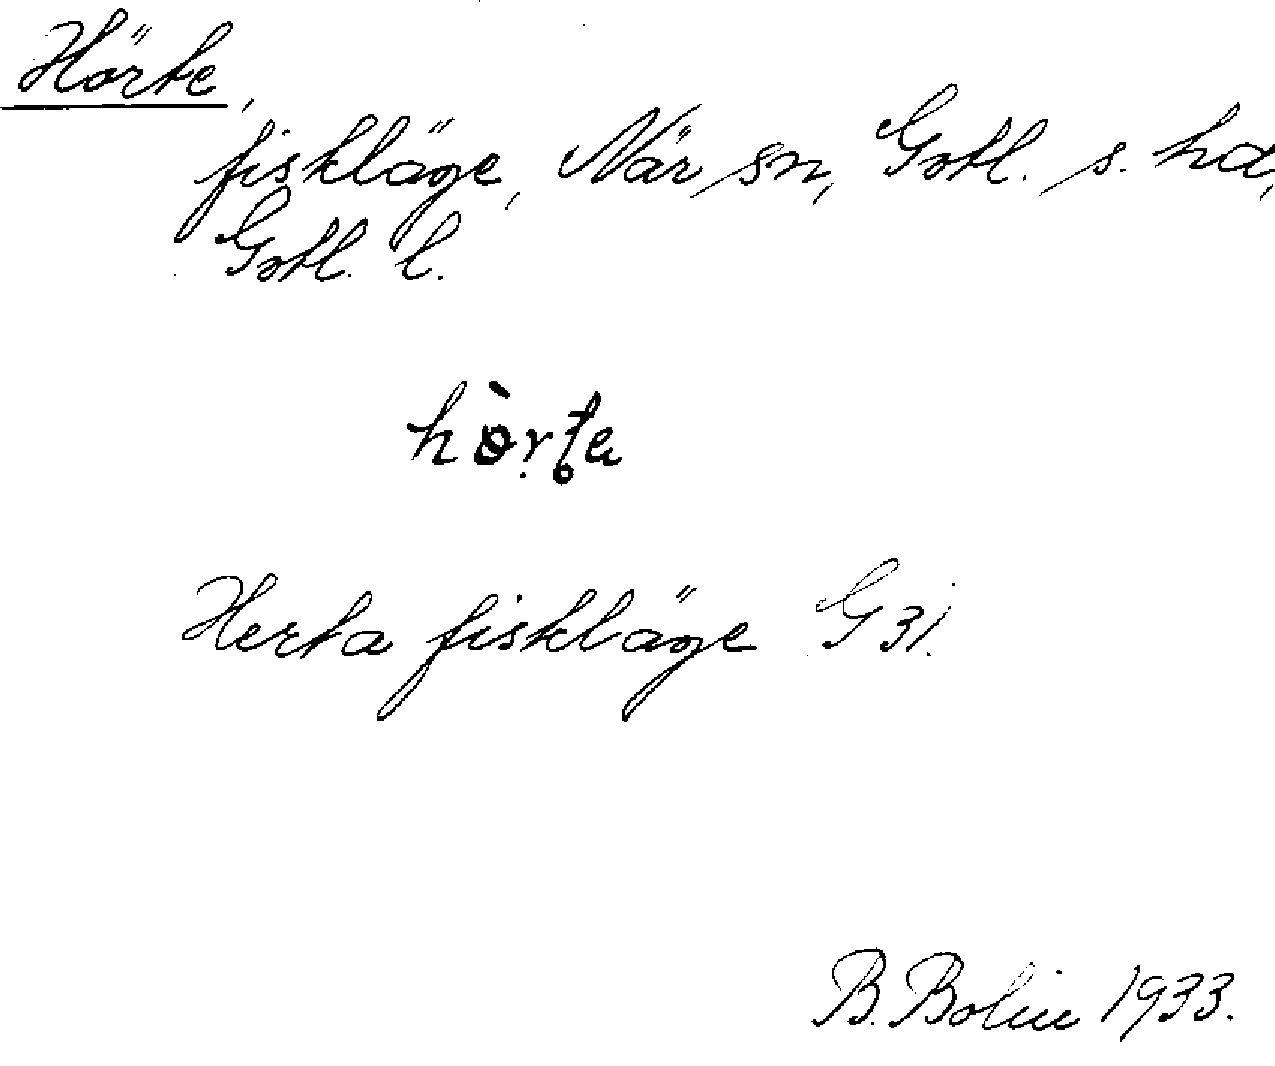 Hörte,
fiskläge, När sn, Gotl. s. hd,
Gotl. l.
Herta fiskläge G 31.
B. Bolin 1933.